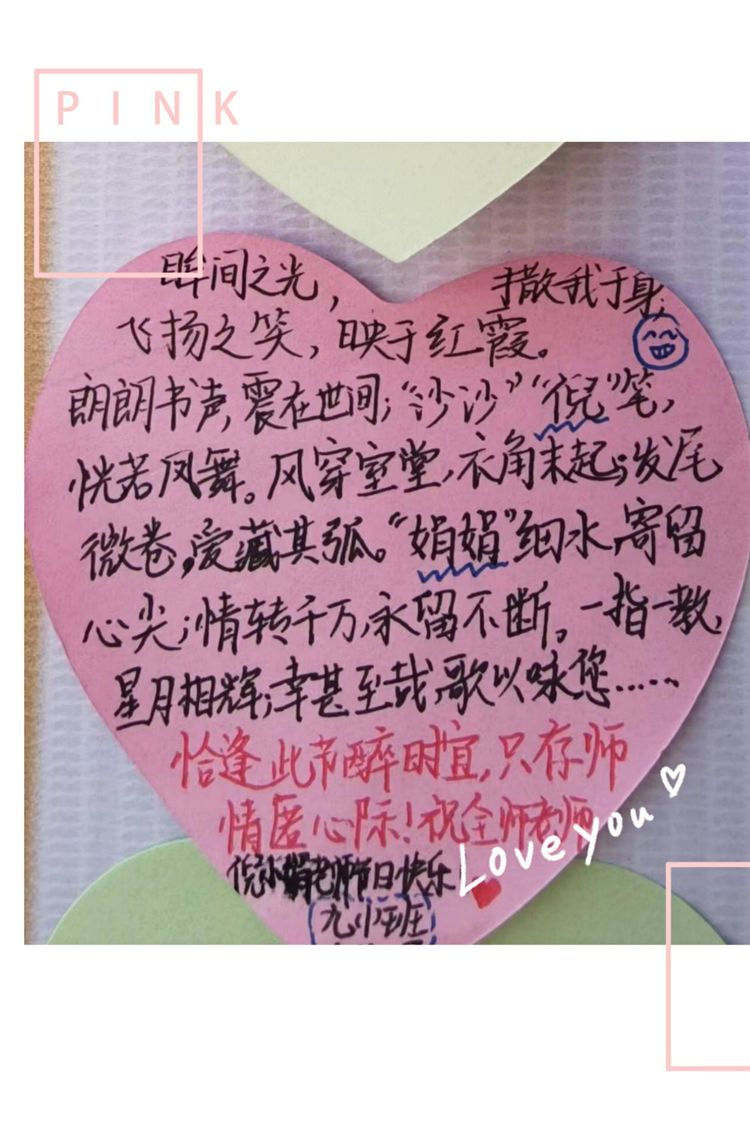 PINK
眸间之光，撒我于身，
飞扬之笑，映于红霞。
朗朗书声，震在世间；“沙沙”“倪”笔，
恍若凤舞。风穿室堂，衣角末起；发尾
微卷，爱藏其弧。“娟娟”细水，寄留
心尖；情转千万，永留不断。一指一教，
星月相辉；幸甚至哉，歌以咏您……
恰逢此节醉时宜，只存师
情匿心际！祝全师老师
Love you
倪小娟老师节日快乐